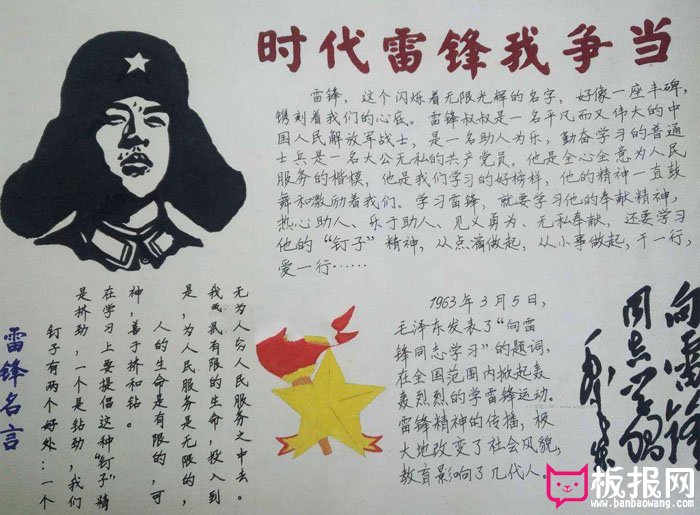 时代雷锋我争当
雷锋，这个闪烁着无限光辉的名字，好像一座丰碑，
镌刻着我们的心底。雷锋叔叔是一名平凡而又伟大的中
国人民解放军战士，是一名助人为乐，勤奋学习的普通
士兵是一名大公无私的共产党员。他是全心全意为人民
服务的楷模，他是我们学习的好榜样，他的精神一直鼓
舞和激励着我们。学习雷锋，就要学习他的奉献精神，
热心助人、乐于助人、见义勇为、无私奉献，还要学习
他的“钉子”精神，从点滴做起，从小事做起，干一行，
爱一行……
雷锋名言
钉子有两个好处：一个
是挤劲，一个是钻劲，我们
在学习上要提倡这种“钉子”精
神，善于挤和钻。
人的生命是有限的，可
是，为人民服务是无限的，
我有限的生命，投入到
无为人人民服务之中去。
1963年3月5日，
毛泽东发表了“向雷
锋同志学习”的题词，
在全国范围内掀起轰
轰烈烈的学雷锋运动。
雷锋精神的传播，极
大地改变了社会风貌，
教育影响了几代人。
向雷锋
同志学习
毛泽东
板报网
www.banbaowang.com